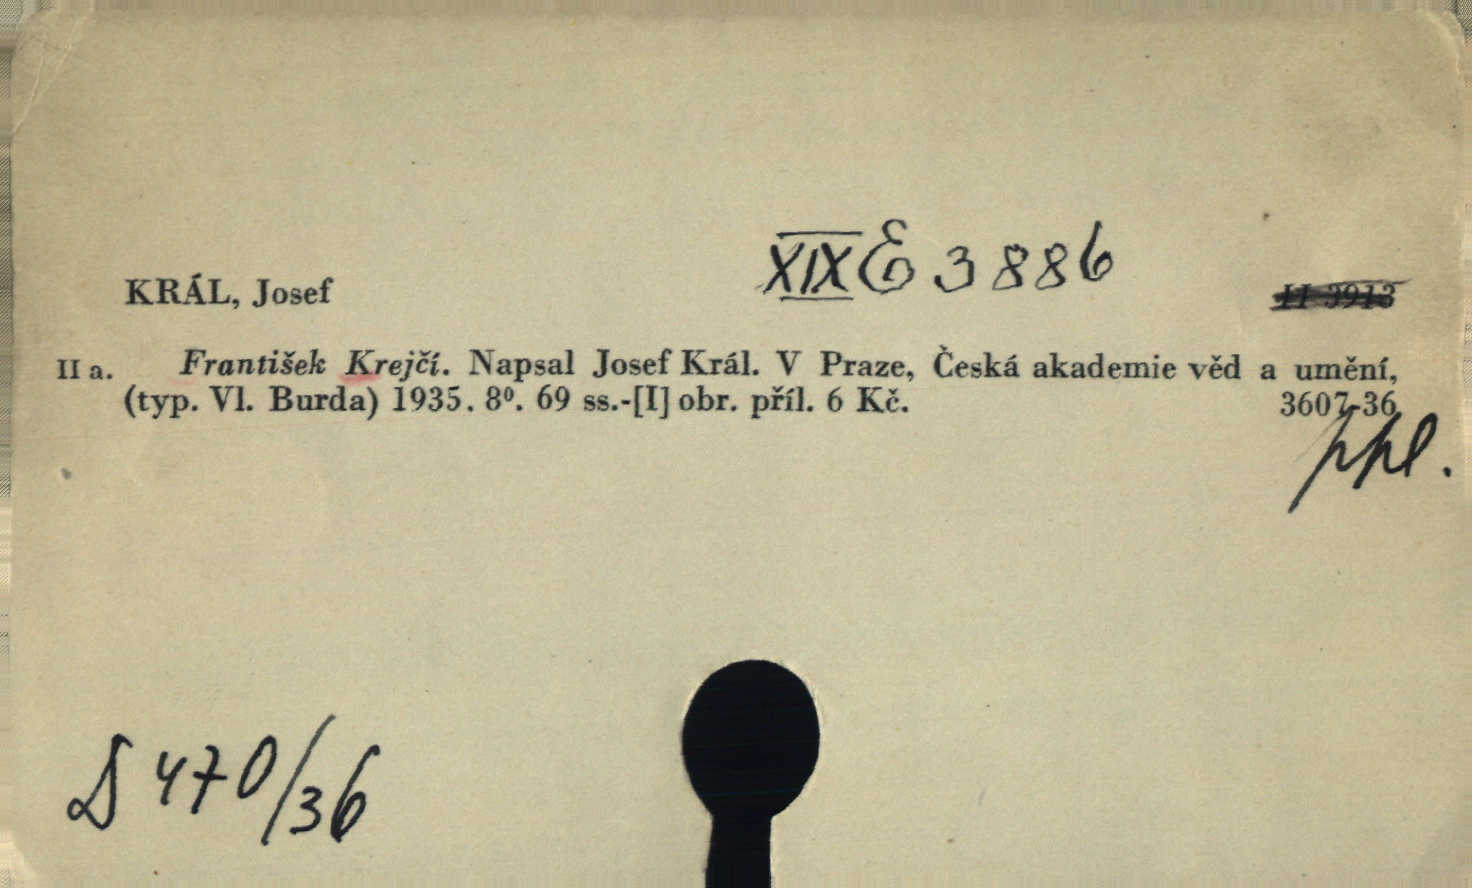 XIX E 3886
KRÁL, Josef
II a. František Krejčí. Napsal Josef Král. V Praze, Česká akademie věd a umění,
(typ. Vl. Burda) 1935. 8⁰. 69 ss.-[I] obr. příl. 6 Kč. 3607-36
ppl.
D 470/36